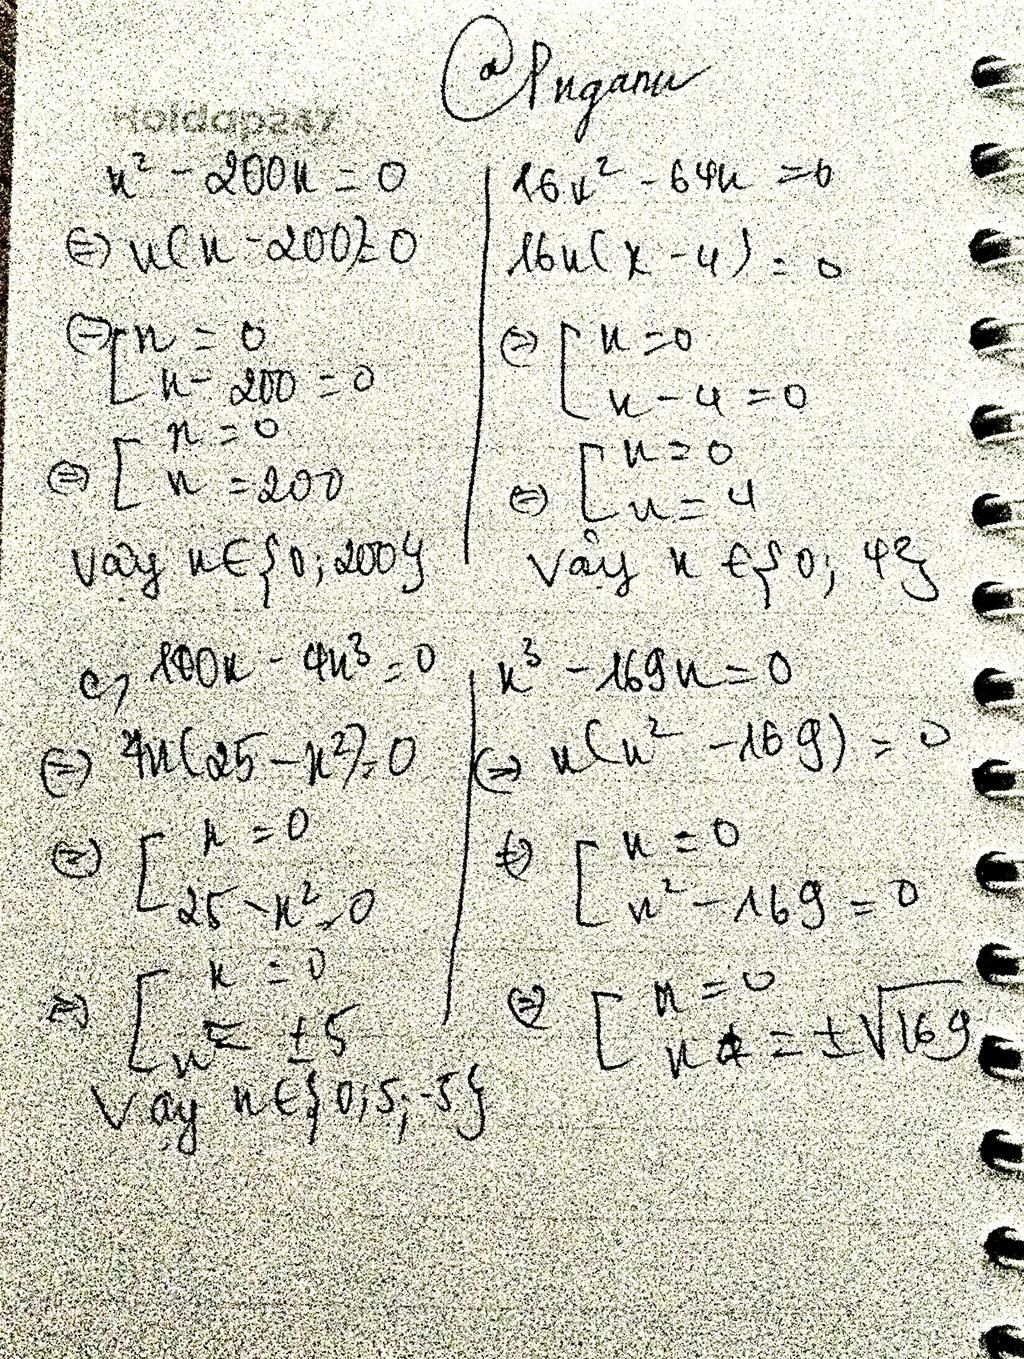 @Pnganu
Hoidap247
x² - 200x = 0
⇔ x(x - 200) = 0
⇔ [ x = 0
x - 200 = 0
⇔ [ x = 0
x = 200
Vậy x ∈ {0; 200}
16x² - 64x = 0
16x(x - 4) = 0
⇔ [ x = 0
x - 4 = 0
⇔ [ x = 0
x = 4
Vậy x ∈ {0; 4}
c, 100x - 4x³ = 0
⇔ 4x(25 - x²) = 0
⇔ [ x = 0
25 - x² = 0
⇔ [ x = 0
x = ±5
Vậy x ∈ {0; 5; -5}
x³ - 169x = 0
⇔ x(x² - 169) = 0
⇔ [ x = 0
x² - 169 = 0
⇔ [ x = 0
x = ±√169